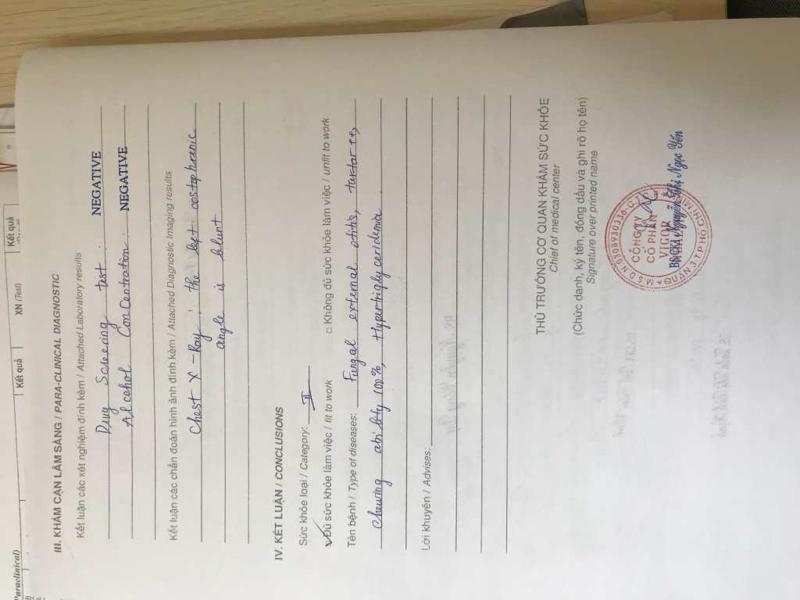 Paraclinical)
Kết quả
XN (Test)
Kết quả
III. KHÁM CẬN LÂM SÀNG / PARA-CLINICAL DIAGNOSTIC
Kết luận các xét nghiệm đính kèm / Attached Laboratory results
Drug Screening test : NEGATIVE
Alcohol Concentration: NEGATIVE
Kết luận các chẩn đoán hình ảnh đính kèm / Attached Diagnostic Imaging results
Chest X-Ray : the left costophrenic
angle is blunt
IV. KẾT LUẬN / CONCLUSIONS
Sức khỏe loại / Category: II
Đủ sức khỏe làm việc / fit to work □ Không đủ sức khỏe làm việc / unfit to work
Tên bệnh / Type of diseases: Fungal external otitis, tartar++,
chewing ability 100%, Hypertriglyceridemia
Lời khuyên / Advises:
THỦ TRƯỞNG CƠ QUAN KHÁM SỨC KHỎE
Chief of medical center
(Chức danh, ký tên, đóng dấu và ghi rõ họ tên)
Signature over printed name
CÔNG TY
CỔ PHẦN
VIGOR
QUẬN 3 - T.P HỒ CHÍ MINH
Nguyễn Thị Ngọc Yến